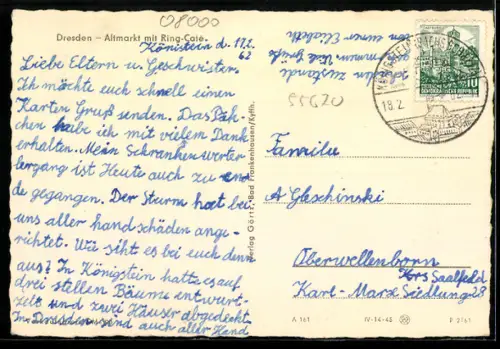 08000
Dresden – Altmarkt mit Ring-Café
Königstein d. 17.2.
62
Liebe Eltern u. Geschwister.
Ich möchte euch schnell einen
Karten Gruß senden. Das Päk-
chen habe ich mit vielem Dank
erhalten. Mein Schrankenwerter
lergang ist Heute auch zu en
de gegangen. Der Sturm hat bei
uns aller hand schäden ange-
richtet. Wie siht es bei euch denn
aus? In Königstein hatte es auf
drei stellen Bäume entwurt-
zelt und zwei Häuser abgedeckt.
In Dresden sind auch aller Hand
zustande
gekommen. Viele Grüße
von eurer Elisabeth
55620
Verlag Görtz, Bad Frankenhausen/Kyffh.
10
DEUTSCHE
DEMOKRATISCHE REPUBLIK
18.2.
Familie
A Gleschinski
Oberwellenborn
Krs Saalfeld
Karl-Marx Siedlung 28
A 161
IV-14-45